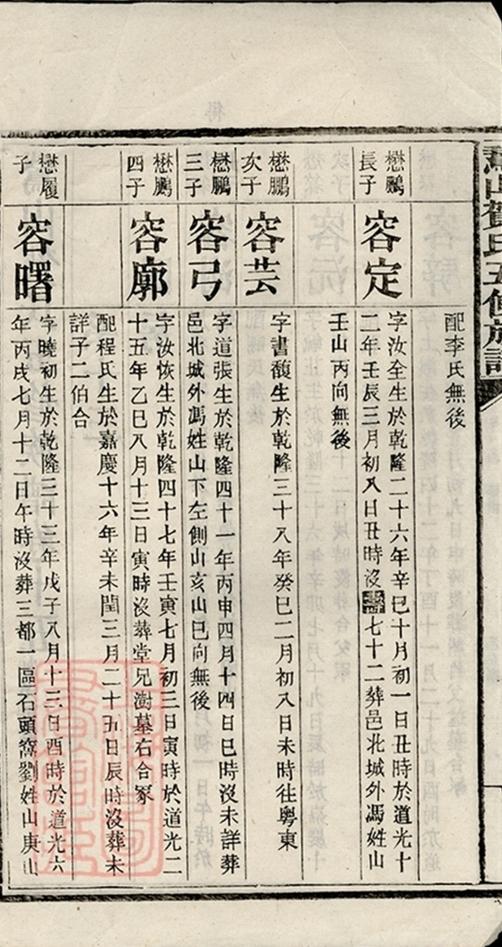 賀氏五修族譜
配李氏無後
懋鵬
長子
容定
字汝全生於乾隆二十六年辛巳十月初一日丑時於道光十
二年壬辰三月初八日丑時沒壽七十二葬邑北城外馮姓山
壬山丙向無後
懋鵬
次子
容芸
字書馥生於乾隆三十八年癸巳二月初八日未時往粵東
懋鵬
三子
容弓
字道張生於乾隆四十一年丙申四月十四日巳時沒未詳葬
邑北城外馮姓山下左側山亥山巳向無後
懋鵬
四子
容廓
字汝恢生於乾隆四十七年壬寅七月初三日寅時於道光二
十五年乙巳八月十三日寅時沒葬堂兄澍墓石合冢
配程氏生於嘉慶十六年辛未閏三月二十五日辰時沒葬未
詳子二伯合
懋履
子
容曙
字曉初生於乾隆三十三年戊子八月十三日酉時於道光六
年丙戌七月十二日午時沒葬三都一區石頭窩劉姓山庚山